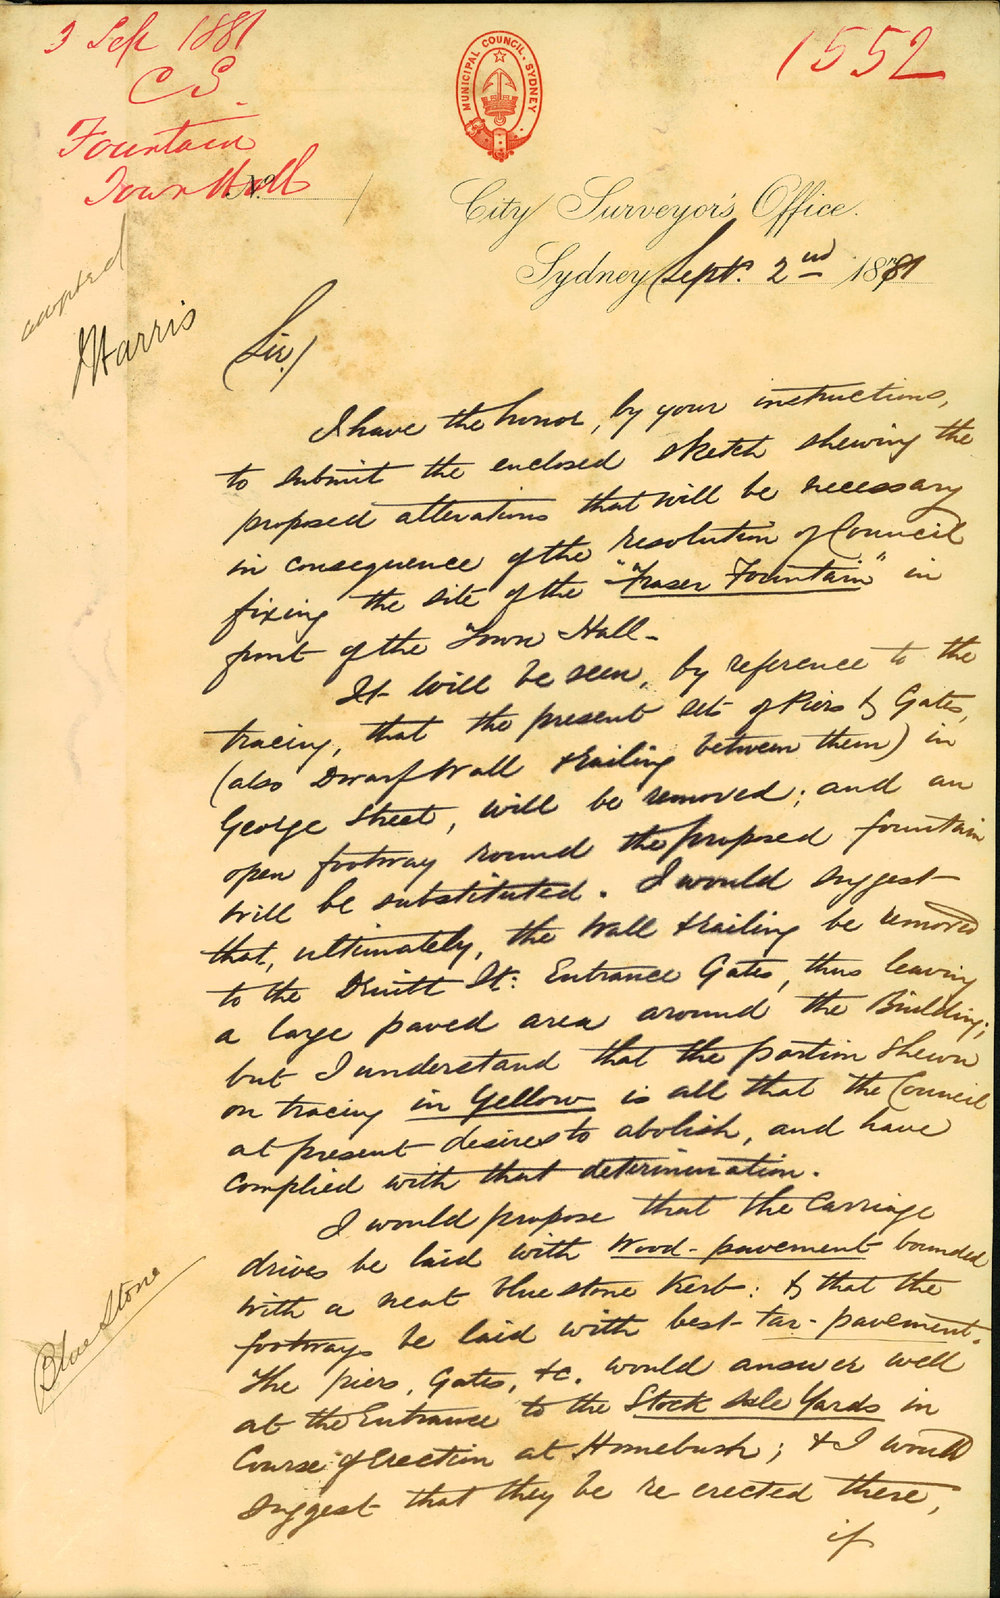 3 Sep 1881
C S.
Fountain
Town Hall
1552
MUNICIPAL COUNCIL. SYDNEY
No. /
City Surveyor's Office.
Sydney Sept. 2nd 1881
adopted
J Harris
Sir/
I have the honor, by your instructions,
to submit the enclosed sketch shewing the
proposed alterations that will be necessary
in consequence of the resolution of Council
fixing the site of the "Fraser Fountain" in
front of the Town Hall -
It will be seen, by reference to the
tracing, that the present set of Piers & Gates,
(also Dwarf Wall & railing between them) in
George Street, will be removed; and an
open footway round the proposed fountain
will be substituted. I would suggest
that, ultimately, the Wall & railing be removed
to the Druitt St: Entrance Gates, thus leaving
a large paved area around the Building;
but I understand that the portion shewn
on tracing in Yellow is all that the Council
at present desires to abolish, and have
complied with that determination.
I would propose that the Carriage
drives be laid with Wood-pavement bounded
with a neat blue stone kerb: & that the
footways be laid with best-tar-pavement.
The piers, Gates, &c. would answer well
at the Entrance to the Stock sale Yards in
Course of Erection at Homebush; & I would
suggest that they be re erected there,
if
Blue Stone